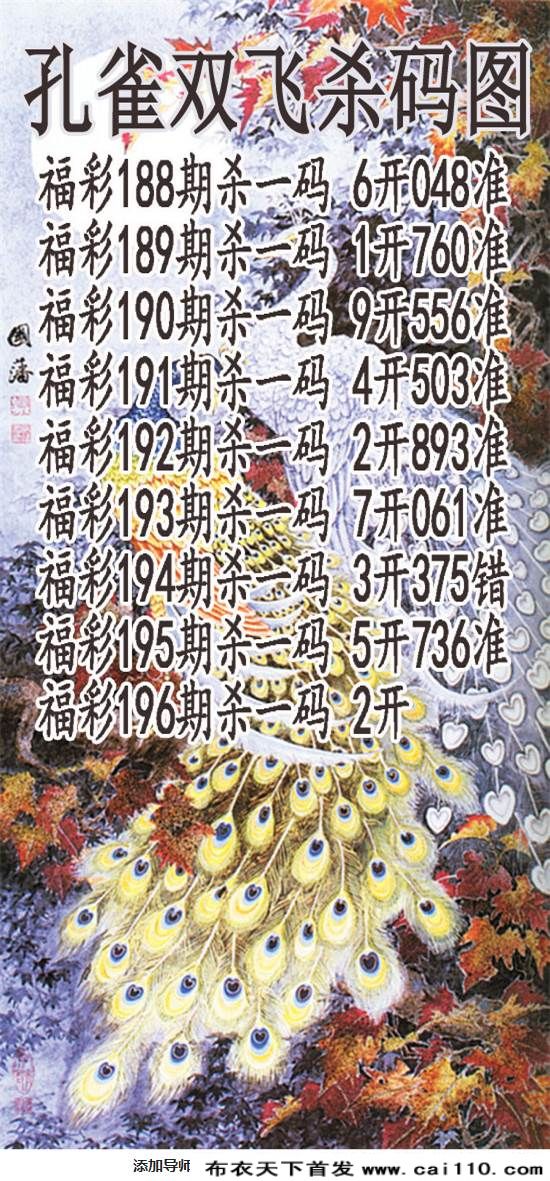 孔雀双飞杀码图
福彩188期杀一码 6开048准
福彩189期杀一码 1开760准
福彩190期杀一码 9开556准
福彩191期杀一码 4开503准
福彩192期杀一码 2开893准
福彩193期杀一码 7开061准
福彩194期杀一码 3开375错
福彩195期杀一码 5开736准
福彩196期杀一码 2开
國藩
添加导师 布衣天下首发 www.cai110.com